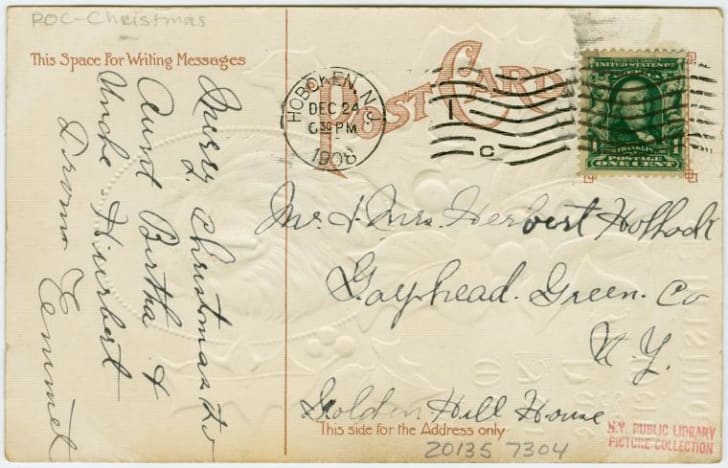 POC-Christmas
This Space For Writing Messages
Merry Christmas to
Aunt Bertha &
Uncle Hurbert
From Emmet
POST CARD
HOBOKEN, N.J.
DEC 24
630 PM
1908
1
C
UNITED STATES
FRANKLIN
POSTAGE
ONE CENT
Mr. & Mrs. Herbert
Gayhead. Green. Co
N.Y.
Golden Hill House
This side for the Address only
20135 7304
N.Y. PUBLIC LIBRARY
PICTURE COLLECTION